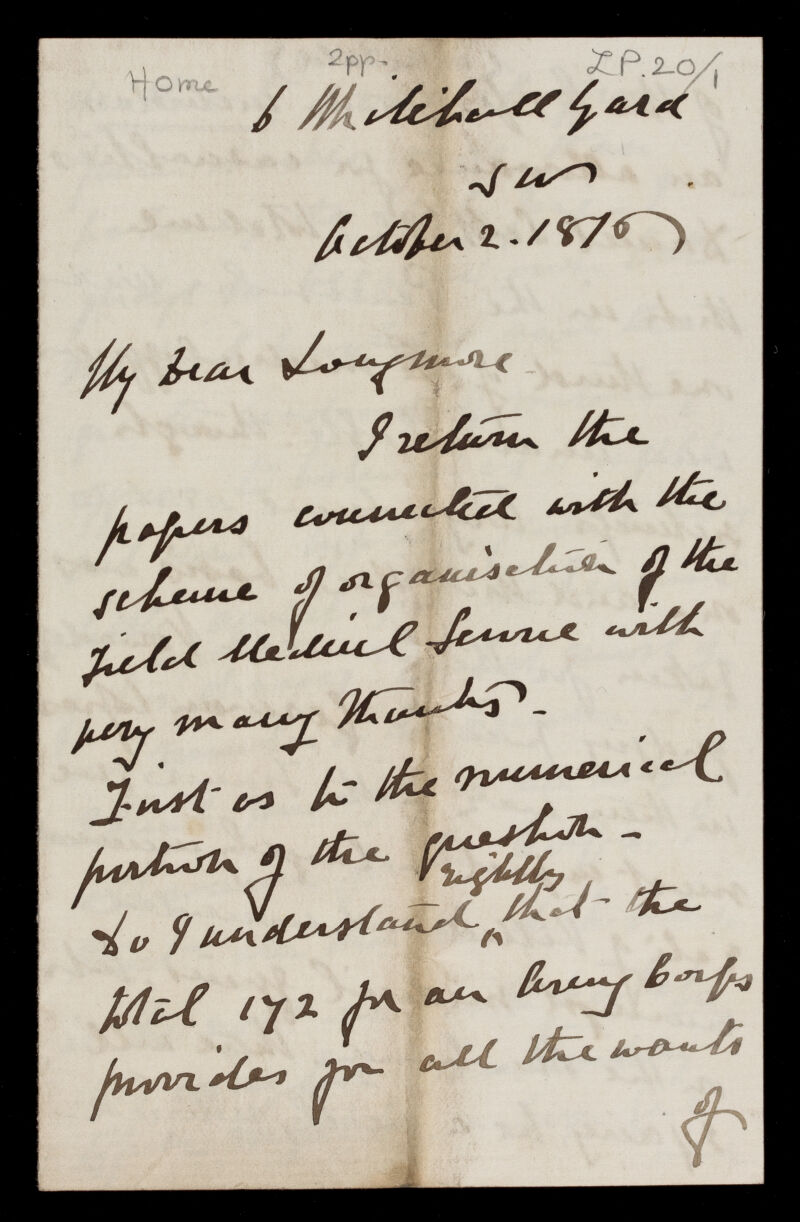 Home
2pp.
LP. 20/1
6 Whitehall Yard
S W
October 2. 1876
My Dear Longmore
I return the
papers connected with the
scheme of organisation of the
Field Medical Service with
very many thanks.
First as to the numerical
portion of the question -
rightly
Do I understand ^ that the
total 172 for an Army Corps
provides for all the wants
of